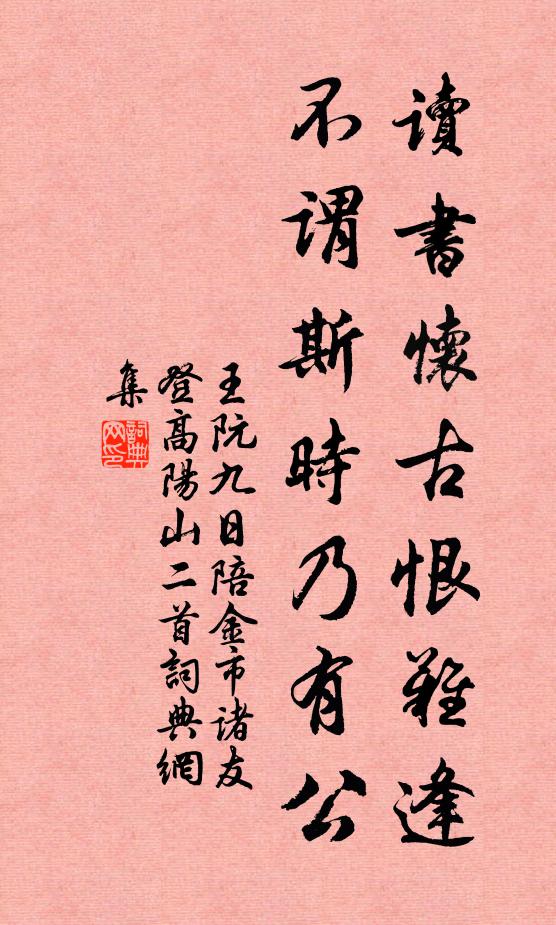 讀書懷古恨難逢
不謂斯時乃有公
王阮九日陪金市諸友
登高陽山二首詞典網
集
詞典
网印